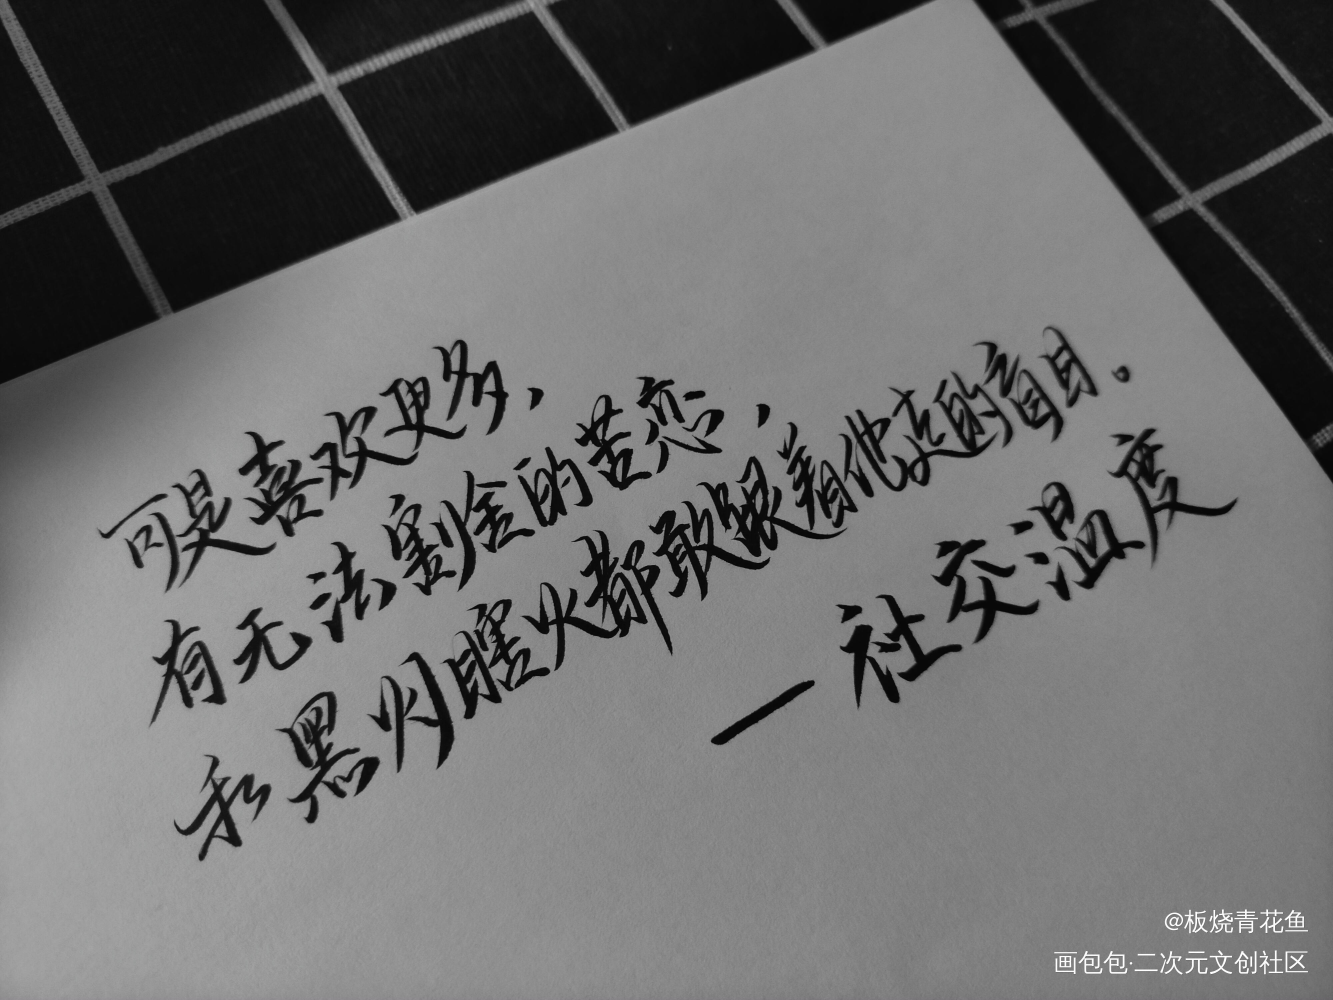 可是喜欢更多，
有无法割舍的苦恋，
和黑灯瞎火都敢跟着他走的盲目。
一社交温度
@板烧青花鱼
画包包·二次元文创社区